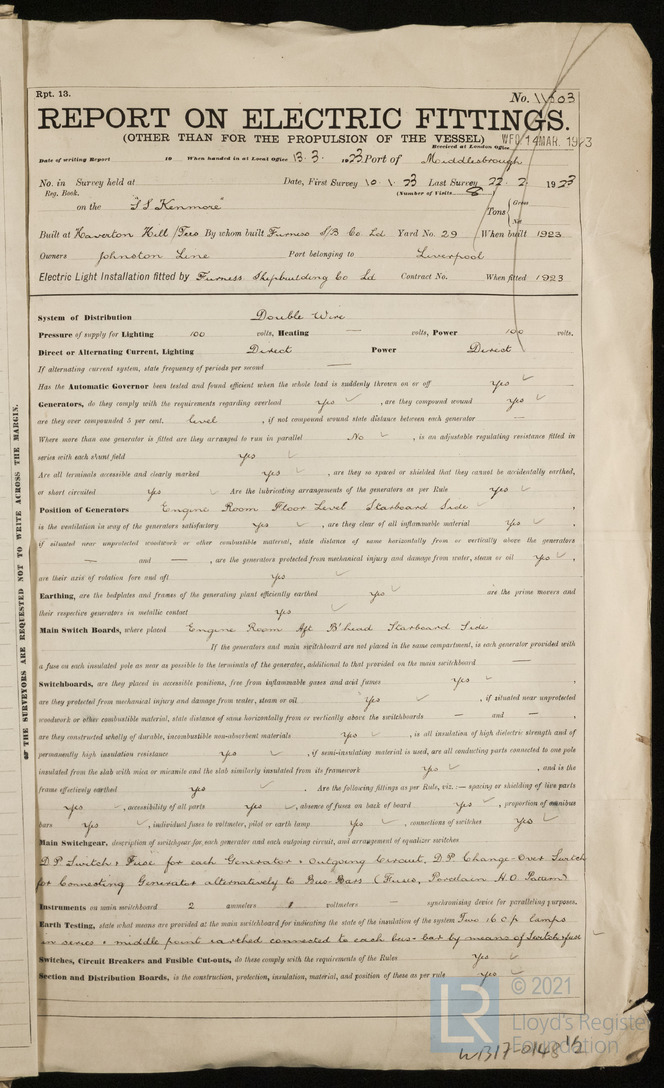 Rpt. 13.
No. 11503
REPORT ON ELECTRIC FITTINGS.
(OTHER THAN FOR THE PROPULSION OF THE VESSEL)
Received at London Office WED. 14 MAR. 1923
Date of writing Report 19 When handed in at Local Office 13.3. 1923 Port of Middlesbrough
No. in Survey held at Date, First Survey 10.1.23 Last Survey 22.2. 1923
Reg. Book. (Number of Visits 8)
on the "S.S. Kenmore" Tons { Gross
Net
Built at Haverton Hill/Tees By whom built Furness S/B Co Ld Yard No. 29 When built 1923
Owners Johnston Line Port belonging to Liverpool
Electric Light Installation fitted by Furness Shipbuilding Co Ld Contract No. When fitted 1923
System of Distribution Double Wire
Pressure of supply for Lighting 100 volts, Heating — volts, Power 100 volts.
Direct or Alternating Current, Lighting Direct Power Direct
If alternating current system, state frequency of periods per second —
Has the Automatic Governor been tested and found efficient when the whole load is suddenly thrown on or off yes ✓
Generators, do they comply with the requirements regarding overload yes ✓, are they compound wound yes ✓
are they over compounded 5 per cent. level, if not compound wound state distance between each generator —
Where more than one generator is fitted are they arranged to run in parallel No ✓, is an adjustable regulating resistance fitted in
series with each shunt field yes ✓
Are all terminals accessible and clearly marked yes ✓, are they so spaced or shielded that they cannot be accidentally earthed,
or short circuited yes ✓ Are the lubricating arrangements of the generators as per Rule yes ✓
Position of Generators Engine Room Floor Level Starboard Side ✓,
is the ventilation in way of the generators satisfactory yes ✓, are they clear of all inflammable material yes ✓,
if situated near unprotected woodwork or other combustible material, state distance of same horizontally from or vertically above the generators
— and —, are the generators protected from mechanical injury and damage from water, steam or oil yes ✓,
are their axis of rotation fore and aft yes ✓
Earthing, are the bedplates and frames of the generating plant efficiently earthed yes ✓ are the prime movers and
their respective generators in metallic contact yes ✓
Main Switch Boards, where placed Engine Room Aft B'head Starboard Side
If the generators and main switchboard are not placed in the same compartment, is each generator provided with
a fuse on each insulated pole as near as possible to the terminals of the generator, additional to that provided on the main switchboard —
Switchboards, are they placed in accessible positions, free from inflammable gases and acid fumes yes ✓,
are they protected from mechanical injury and damage from water, steam or oil yes ✓, if situated near unprotected
woodwork or other combustible material, state distance of same horizontally from or vertically above the switchboards — and —,
are they constructed wholly of durable, incombustible non-absorbent materials yes ✓, is all insulation of high dielectric strength and of
permanently high insulation resistance yes ✓, if semi-insulating material is used, are all conducting parts connected to one pole
insulated from the slab with mica or micanite and the slab similarly insulated from its framework yes ✓, and is the
frame effectively earthed yes ✓. Are the following fittings as per Rule, viz.:— spacing or shielding of live parts
yes ✓, accessibility of all parts yes ✓, absence of fuses on back of board yes ✓, proportion of omnibus
bars yes ✓, individual fuses to voltmeter, pilot or earth lamp yes ✓, connections of switches yes ✓
Main Switchgear, description of switchgear for each generator and each outgoing circuit, and arrangement of equalizer switches
D.P. Switch & Fuse for each Generator & Outgoing Circuit, D.P. Change-Over Switch
for Connecting Generator alternately to Bus-Bars (Fuses, Porcelain H.O. Pattern)
Instruments on main switchboard 2 ammeters 1 voltmeters — synchronising device for paralleling purposes.
Earth Testing, state what means are provided at the main switchboard for indicating the state of the insulation of the system Two 16 c.p. lamps
in series & middle point earthed connected to each bus-bar by means of switch & fuse ✓
Switches, Circuit Breakers and Fusible Cut-outs, do these comply with the requirements of the Rules yes ✓
Section and Distribution Boards, is the construction, protection, insulation, material, and position of these as per rule yes ✓
THE SURVEYORS ARE REQUESTED NOT TO WRITE ACROSS THE MARGIN.
LR
© 2021
Lloyd's Register
Foundation
W1317-0148 1/2